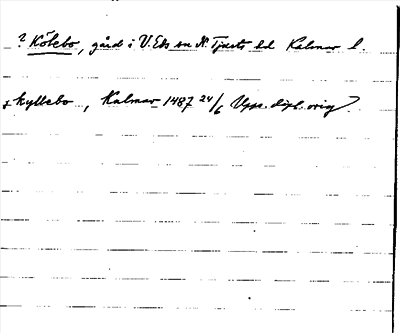 ? Kölebo, gård i V. Eds sn N. Tjusts hd Kalmar l.
kyllebo, Kalmar 1487 24/6 Upps. dipl. orig.